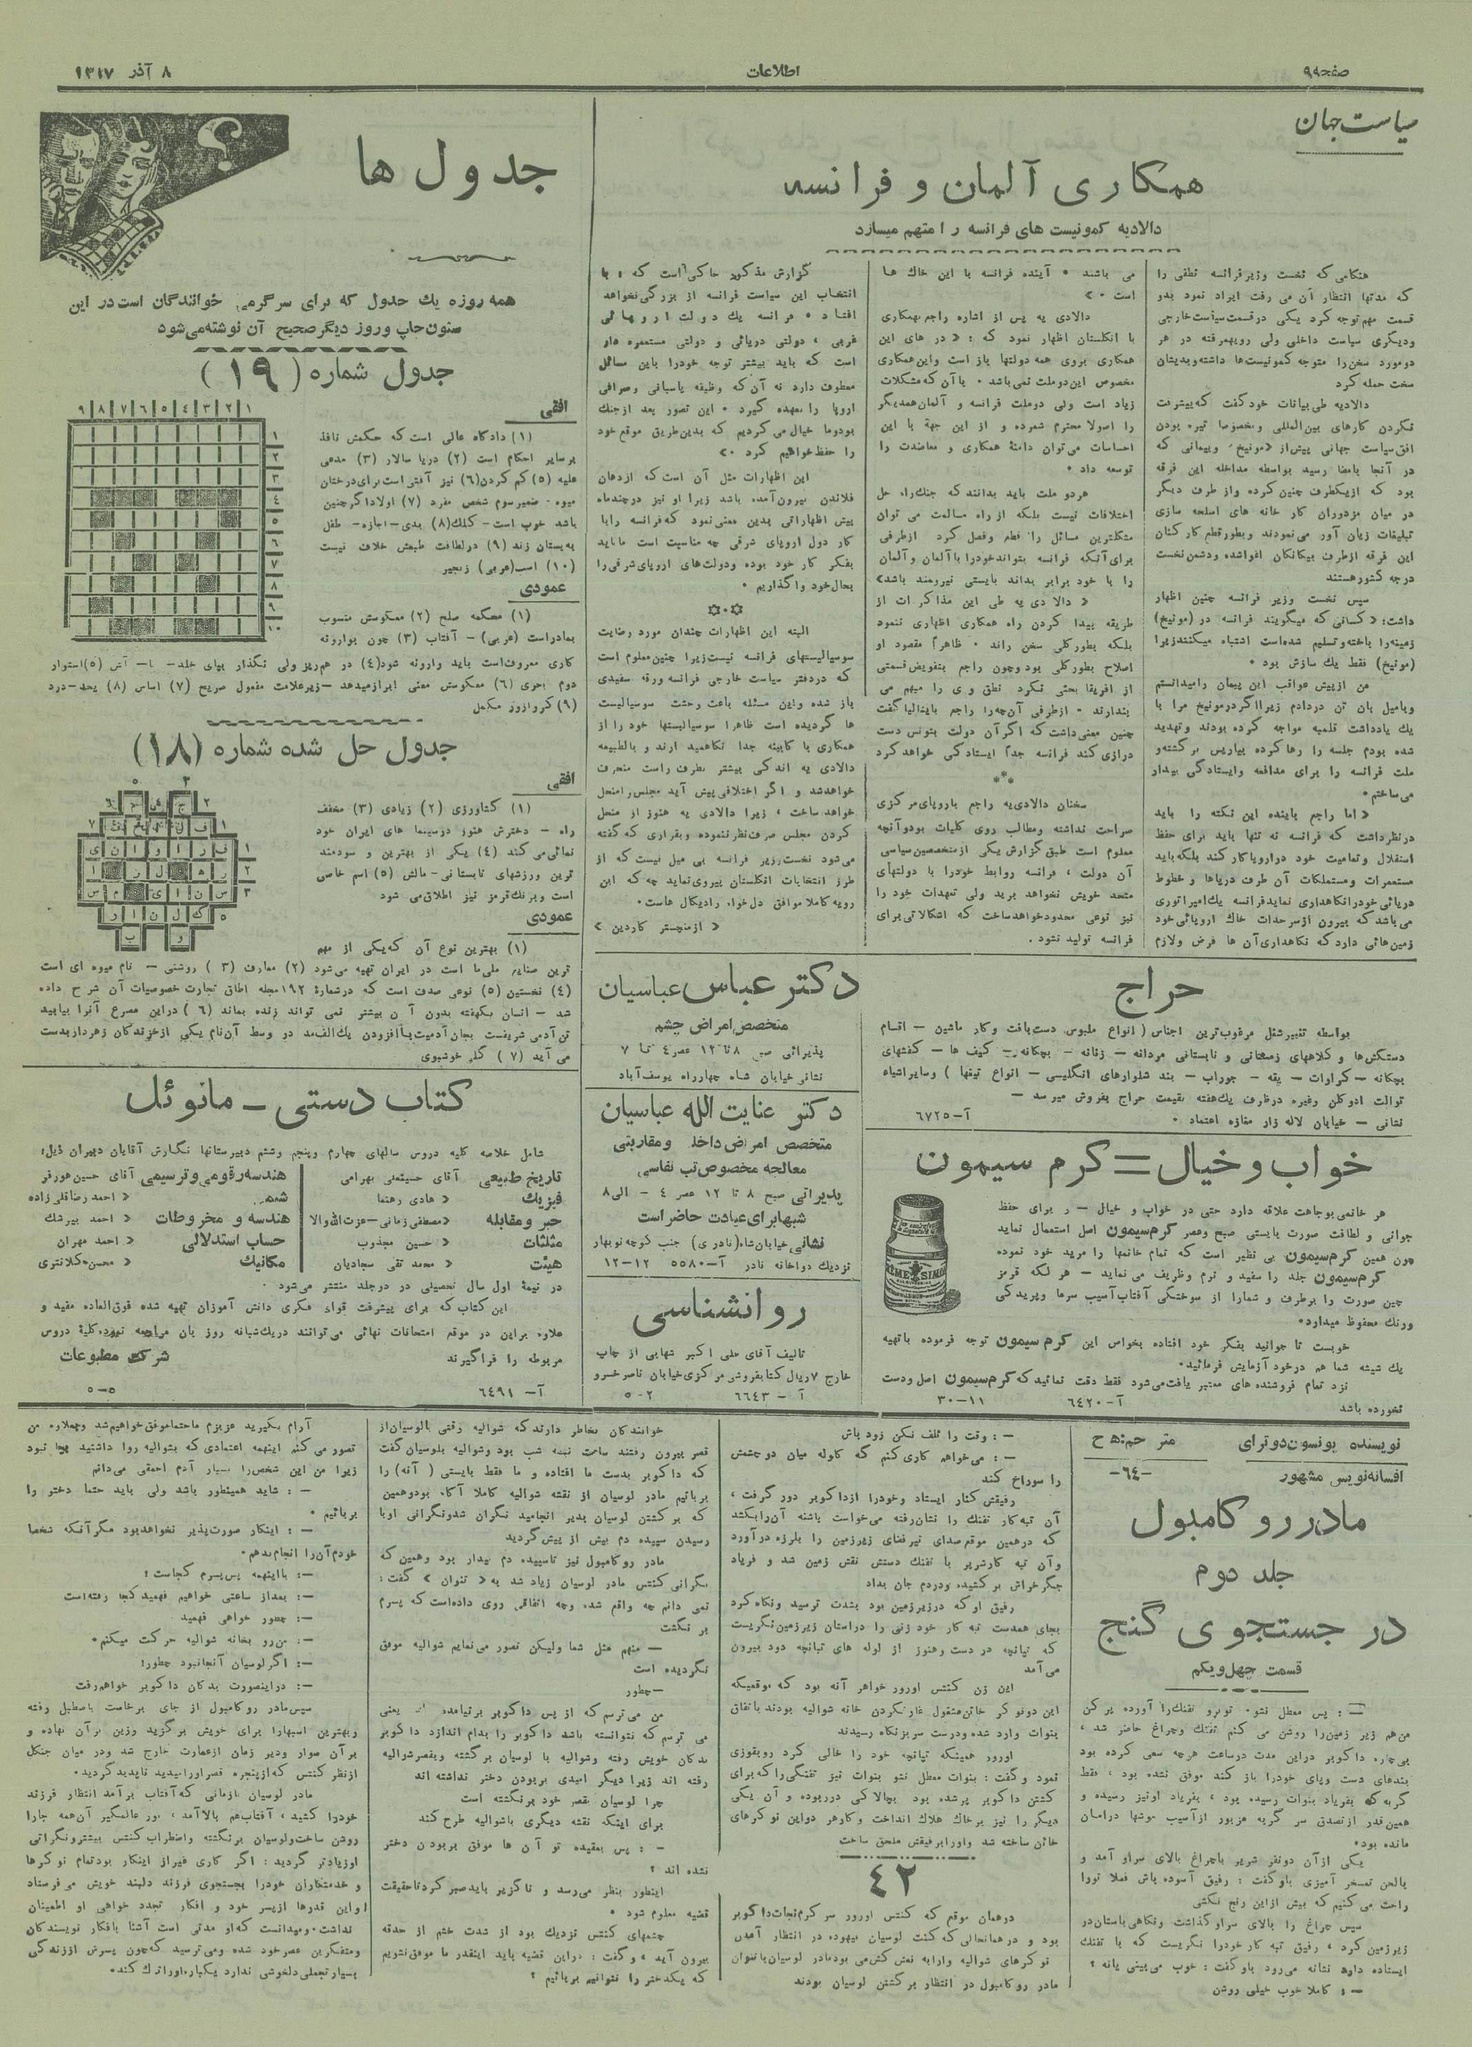 صفحه۹۹
اطلاعات
۸ آذر ۱۳۱۷
سیاست جهان
همکاری آلمان و فرانسه
دالادیه کمونیست های فرانسه را متهم میسازد
هنگامی که نخست وزیر فرانسه نطقی را
که مدتها انتظار آن می رفت ایراد نمود بدو
قسمت مهم توجه کرد یکی در قسمت سیاست خارجی
ودیگری سیاست داخلی ولی رویهمرفته در هر
دو مورد سخن را متوجه کمونیست‌ها داشته وبدیشان
سخت حمله کرد
دالادیه طی بیانات خود گفت که پیشرفت
نکردن کارهای بین‌المللی وبخصوصا تیره بودن
افق سیاست جهانی پیش از «مونیخ» وپیمانی که
در آنجا بامضا رسید بواسطه مداخله این فرقه
بود که ازیکطرف چنین کرده واز طرف دیگر
در میان مزدوران کار خانه های اسلحه سازی
تبلیغات زیان آور می نمودند وبطور قطع کار کنان
این فرقه ازطرف بیگانگان اغوا شده ودشمن نخست
درجه کشور هستند
سپس نخست وزیر فرانسه چنین اظهار
داشت: « کسانی که میگویند فرانسه در (مونیخ)
زمینه را باخته وتسلیم شده است اشتباه میکنند زیرا
(مونیخ) فقط یك سازش بود .
من ازپیش عواقب این پیمان را میدانستم
وبامیل بان تن دردادم زیرا اگر در مونیخ مرا با
یك یادداشت قلمیه مواجه کرده بودند وتهدید
شده بودم جلسه را رها کرده بپاریس بر گشته و
ملت فرانسه را برای مدافعه وایستادگی بیدار
می‌ساختم .
« اما راجع باینده این نکته را باید
در نظر داشت که فرانسه نه تنها باید برای حفظ
استقلال و تمامیت خود در اروپا کار کند بلکه باید
مستعمرات ومستملکات آن طرف دریاها و خطوط
دریائی خود را نگاهداری نماید فرانسه یك امپراتوری
می باشد که بیرون از سرحدات خاك اروپائی خود
زمین‌هائی دارد که نگاهداری آن ها فرض ولازم
می باشند . آینده فرانسه با این خاك ها
است . »
دالادی یه پس از اشاره راجع بهمکاری
با انگلستان اظهار نمود که : « در های این
همکاری بروی همه دولتها باز است واین همکاری
مخصوص این دو ملت نمی باشد . با آن که مشکلات
زیاد است ولی دو ملت فرانسه و آلمان همدیگر
را اصولا محترم شمرده و از این جهة با این
احساسات می توان دامنهٔ همکاری و معاضدت را
توسعه داد .
هر دو ملت باید بدانند که جنگ راه حل
اختلافات نیست بلکه از راه مسالمت می توان
مشکلترین مسائل را قطع وفصل کرد ازطرفی
برای آنکه فرانسه بتواند خود را با آلمان و آلمان
را با خود برابر بداند بایستی نیرومند باشد»
« دالادی یه طی این مذاکرات از
طریقه پیدا کردن راه همکاری اظهاری ننمود
بلکه بطور کلی سخن راند . ظاهراً مقصود او
اصلاح بطور کلی بود وچون راجع بتفویض قسمتی
از افریقا بحثی نکرد نطق وی را مبهم می
پندارند . ازطرفی آن چه را راجع بایتالیا گفت
چنین معنی داشت که اگر آن دولت بتونس دست
درازی کند فرانسه جداً ایستادگی خواهد کرد
***
سخنان دالادی‌یه راجع باروپای مرکزی
صراحت نداشته ومطالب روی کلیات بود و آنچه
معلوم است طبق گزارش یکی از متخصصین سیاسی
آن دولت ، فرانسه روابط خود را با دولتهای
متحد خویش نخواهد برید ولی تعهدات خود را
نیز نوعی محدود خواهد ساخت که اشکالاتی برای
فرانسه تولید نشود .
گزارش مذکور حاکی است که : با
انتخاب این سیاست فرانسه از بزرگی نخواهد
افتاد . فرانسه یك دولت اروپائی
غربی ، دولتی دریائی و دولتی مستعمره دار
است که باید بیشتر توجه خود را باین مسائل
معطوف دارد نه آن که وظیفه پاسبانی وصرافی
اروپا را بعهده گیرد . این تصور بعد از جنك
بود وما خیال می کردیم که بدین طریق موقع خود
را حفظ خواهیم کرد . »
این اظهارات مثل آن است که از دهان
فلاندن بیرون آمده باشد زیرا او نیز در چند ماه
پیش اظهاراتی بدین معنی نمود که فرانسه را با
کار دول اروپای شرقی چه مناسبت است ما باید
بفکر کار خود بوده ودولت‌های اروپای شرقی را
بحال خود واگذاریم .
البته این اظهارات چندان مورد رضایت
سوسیالیستهای فرانسه نیست زیرا چنین معلوم است
که در دفتر سیاست خارجی فرانسه ورقه سفیدی
باز شده واین مسئله باعث رحشت سوسیالیست
ها گردیده است ظاهراً سوسیالیستها خود را از
همکاری با کابینه جدا نگاهمید ارند و بالطبیعه
دالادی یه اندکی بیشتر بطرف راست منحرف
خواهد شد و اگر اختلافی پیش آید مجلس را منحل
خواهد ساخت ، زیرا دالادی یه هنوز از منحل
کردن مجلس صرف نظر ننموده وبقراری که گفته
می‌شود نخست وزیر فرانسه بی میل نیست که از
طرز انتخابات انگلستان پیروی نماید چه که این
رویه کاملا موافق دل خواه رادیکال هاست.
« از منچستر گاردین »
جدول ها
همه روزه یك جدول که برای سرگرمی خوانندگان است در این
ستون چاپ وروز دیگر صحیح آن نوشته می شود
جدول شماره (۱۹)
۱ ۲ ۳ ٤ ٥ ٦ ۷ ۸ ۹
۱
۲
۳
٤
٥
٦
۷
۸
۹
۱۰
افقی
(۱) دادگاه عالی است که حکمش نافذ
برسایر احکام است (۲) دریا سالار (۳) مدعی
علیه (۵) کم کردن (٦) نیز آفتی است برای درختان
میوه - ضمیر سوم شخص مفرد (۷) اولاد اگر چنین
باشد خوب است - کلك (۸) بدی - اجازه - طفل
به پستان زند (۹) در لطافت طبعش خلاف نیست
(۱۰) اسب (عربی) زنجیر
عمودی
(۱) محکمه صلح (۲) معکوسش منسوب
بمادر است (عربی) - آفتاب (۳) چون بوارونه
کاری معروف است باید وارونه شود (٤) در هم ریز ولی نگذار بپای خلد - با - آش (۵) استوار
(۹) کروازور مکمل
جدول حل شده شماره (۱۸)
افقی
(۱) کشاورزی (۲) زیادی (۳) مخفف
راه - دخترش هنوز در سینما های ایران خود
نمائی می کند (٤) یکی از بهترین و سودمند
ترین ورزشهای تابستانی - مالش (۵) اسم خاصی
است وبرنك قرمز نیز اطلاق می شود
عمودی
(۱) بهترین نوع آن که یکی از مهم
ترین صنایع ملی ما است در ایران تهیه می‌شود (۲) معارف (۳) روشنی - نام میوه ای است
(٤) نخستین (٥) نوعی صدف است که در شمارهٔ ۱۹۲ مجله اطاق تجارت خصوصیات آن شرح داده
شد - انسان یکهفته بدون آن بیشتر نمی تواند زنده بماند (٦) در این مصرع آنرا بیابید
تن آدمی شریفست بجان آدمیت با افزودن یك الف مد در وسط آن نام یکی از خزندگان زهردار بدست
می آید (۷) گلی خوشبوی
حراج
بواسطه تغییر شغل مرغوب ترین اجناس (انواع ملبوس دست بافت و کار ماشین - اقسام
دستکش‌ها و کلاههای زمستانی و تابستانی مردانه - زنانه - بچگانه - کیف ها - کفشهای
بچگانه - کراوات - یقه - جوراب - بند شلوارهای انگلیسی - انواع تیغها) وسایر اشیاء
توالت ادوکلن وغیره در ظرف یك هفته بقیمت حراج بفروش میرسد -
نشانی - خیابان لاله زار مغازه اعتماد .
آ-۶۷۲۵
دکتر عباس عباسیان
متخصص امراض چشم
پذیرائی صبح ۸ تا ۱۲ عصر ٤ تا ۷
نشانی خیابان شاه چهارراه یوسف آباد
دکتر عنایت الله عباسیان
متخصص امراض داخلی ومقاربتی
معالجه مخصوص تب نفاسی
پذیرائی صبح ۸ تا ۱۲ عصر ٤ - الی ۸
شبها برای عیادت حاضر است
نشانی خیابان شاه (نادری) جنب کوچه نوبهار
نزدیك دواخانه نادر آ-۵۵۸۰ ۱۲-۱۲
روانشناسی
تالیف آقای علی اکبر شهابی از چاپ
خارج ۷ ریال کتابفروشی مرکزی خیابان ناصر خسرو
آ - ۶۶۴۳ ۲-۵
خواب وخیال = کرم سیمون
هر خانمی بوجاهت علاقه دارد حتی در خواب و خیال - و برای حفظ
جوانی و لطافت صورت بایستی صبح وعصر کرم سیمون اصل استعمال نماید
چون همین کرم سیمون بی نظیر است که تمام خانمها را مرید خود نموده
کرم سیمون جلد را سفید و نرم وظریف می نماید - هر لکه قرمز
چین صورت را برطرف و شمارا از سوختگی آفتاب آسیب سرما وپریدگی
ورنك محفوظ میدارد .
خوبست تا جوانید بفکر خود افتاده بخواس این کرم سیمون توجه فرموده باتهیه
یك شیشه شما هم در خود آزمایش فرمائید .
نزد تمام فروشنده های معتبر یافت می‌شود فقط دقت نمائید که کرم سیمون اصل ودست
نخورده باشد
آ-۶۴۲۰ ۱۱-۳۰
CRÈME SIMON
کتاب دستی - مانوئل
شامل خلاصه کلیه دروس سالهای چهارم وپنجم وششم دبیرستانها نگارش آقایان دبیران ذیل:
تاریخ طبیعی آقای حسینعلی بهرامی
فیزیك « هادی رهنما
جبر ومقابله « مصطفی زمانی - عزت الله والا
مثلثات « حسین مجذوب
هیئت « محمد تقی سجادیان
هندسه رقومی وترسیمی آقای حسین هورفر
شیمی « احمد رضا قلی زاده
هندسه و مخروطات « احمد بیرشك
حساب استدلالی « احمد مهران
مکانیك « محسن کلانتری
در نیمهٔ اول سال تحصیلی در دو جلد منتشر می‌شود .
این کتاب که برای پیشرفت قوای فکری دانش آموزان تهیه شده فوق‌العاده مفید و
علاوه براین در موقع امتحانات نهائی می توانند در یك شبانه روز بان مراجعه نموده کلیهٔ دروس
مربوطه را فراگیرند
شرکت مطبوعات
آ-۶۴۹۱ ۵-۵
نویسنده پونسون دوترای
افسانه نویس مشهور
-۶۴-
مادر رو کامبول
جلد دوم
در جستجوی گنج
قسمت چهل ویکم
-: پس معطل نشو . توبرو تفنك را آورده پر کن
من هم زیر زمین را روشن می کنم تفنك وچراغ حاضر شد ،
بی‌چاره داکوبر دراین مدت دو ساعت هرچه سعی کرده بود
بندهای دست وپای خود را باز کند موفق نشده بود ، فقط
گربه که بفریاد بنوات رسیده بود ، بفریاد او نیز رسیده و
همین قدر از تصدق سر گربه مزبور از آسیب موشها درامان
مانده بود .
یکی از آن دو نفر شریر باچراغ بالای سر او آمد و
بالحن تمسخر آمیزی باو گفت : رفیق آسوده باش فعلا تورا
راحت می کنیم که بیش از این رنج نکشی
سپس چراغ را بالای سر او گذاشت ونگاهی باستان در
زیرزمین کرد ، رفیق تبه کار خود را نگریست که با تفنك
ایستاده دارد نشانه می‌رود باو گفت : خوب می بینی یانه ؟
- : کاملا خوب خیلی روشن
- : وقت را تلف نکن زود باش
- : می‌خواهم کاری کنم که گلوله میان دو چشمش
را سوراخ کند
رفیقش کنار ایستاد وخود را از داکوبر دور گرفت ،
آن تبه کار تفنك را نشان رفته می‌خواست ماشه آن را بکشد
که در همین موقع صدای تیر فضای زیرزمین را بلرزه در آورد
و آن تبه کار شریر با تفنك دستش نقش زمین شد و فریاد
جگر خراش بر کشیده ودردم جان بداد
رفیق او که در زیر زمین بود بشدت ترسید ونگاه کرد
بجای همدست تبه کار خود زنی را در استان زیر زمین نگریست
که تپانچه در دست وهنوز از لوله های تپانچه دود بیرون
می‌آمد
این زن کنتس اورور خواهر آنه بود که موقعیکه
این دو نوکر خائن مشغول غارتکردن خانه شوالیه بودند باتفاق
بنوات وارد شده ودرست سر بزنگاه رسیدند
اورور همینکه تپانچه خود را خالی کرد روبقوزی
نمود وگفت : بنوات معطل نشو بنوات نیز تفنگی را که برای
کشتن داکوبر پرشده بود بچالاکی در ربوده و آن یکی
دیگر را نیز برخاك هلاك انداخت وکار هر دو این نوکرهای
خائن ساخته شد واو را برفیقش ملحق ساخت
۴۲
درهمان موقع که کنتس اورور سرگرم نجات داکوبر
بود و درهمانحالی که کنت لوسیان بیهوده در انتظار آمدن
نوکرهای شوالیه وارابه نعش کش می بود مادر لوسیان با تنوان
مادر رو کامبول در انتظار برگشتن لوسیان بودند
خوانندگان بخاطر دارند که شوالیه وقتی بالوسیان از
قصر بیرون رفتند ساعت نیمه شب بود وشوالیه بلوسیان گفت
که داکوبر بدست ما افتاده و ما فقط بایستی (آنه) را
برباییم مادر لوسیان از نقشه شوالیه کاملا آگاه بود وهمین
که برگشتن لوسیان بدیر انجامید نگران شد ونگرانی او با
رسیدن سپیده دم بیش از پیش گردید
مادر روکامبول نیز تاسپیده دم بیدار بود وهمین که
نگرانی کنتس مادر لوسیان زیاد شد به « تنوان » گفت :
نمی دانم چه واقع شده وچه اتفاقی روی داده است که پسرم
بر نگشت
- منهم مثل شما ولیکن تصور می نمایم شوالیه موفق
نگردیده است
- چطور
من می ترسم که از پس داکوبر برنیامده یعنی
می ترسم که نتوانسته باشد داکوبر را بدام اندازد داکوبر
بدکان خویش رفته وشوالیه با لوسیان برگشته وبقصر شوالیه
رفته اند زیرا دیگر امیدی بربودن دختر نداشته اند
چرا لوسیان بقصر خود برنگشته است
برای اینکه نقشه دیگری باشوالیه طرح کند
- : پس بعقیده تو آن ها موفق بربودن دختر
نشده اند ؟
اینطور بنظر می‌رسد و ناگزیر باید صبر کرد تاحقیقت
قضیه معلوم شود .
چشمهای کنتس نزدیك بود از شدت خشم از حدقه
بیرون آید ، وگفت : دراین قضیه باید اینقدر ما موفق نشویم
که یکدختر را نتوانیم برباییم ؟
آرام بگیرید عزیزم ماحتما موفق خواهیم شد وبعلاوه من
تصور می کنم اینهمه اعتمادی که بشوالیه روا داشتید بجا نبود
زیرا من این شخص را بسیار آدم احمقی می دانم
- : شاید همینطور باشد ولی باید حتما دختر را
برباییم .
- : اینکار صورت‌پذیر نخواهد بود مگر آنکه شخصا
خودم آن را انجام بدهم .
- : با اینهمه پس پسرم کجاست ؟
- : بعد از ساعتی خواهیم فهمید کجا رفته است
- : چطور خواهی فهمید
- : من رو بخانه شوالیه حرکت میکنم .
- : اگر لوسیان آنجا نبود چطور ؟
- : در اینصورت بدکان داکوبر خواهم رفت
سپس مادر روکامبول از جای برخاست باصطبل رفته
وبهترین اسبها را برای خویش برگزید وزین برآن نهاده و
برآن سوار ودیر زمان ازعمارت خارج شد ودر میان جنگل
از نظر کنتس که از پنجره قصر اورا میدید ناپدید گردید .
مادر لوسیان تازمانی که آفتاب برآمد انتظار فرزند
خود را کشید ، آفتاب هم بالا آمد ، نور عالمگیر آن همه جا را
روشن ساخت ولوسیان برنگشته واضطراب کنتس بیشتر ونگرانی
او زیادتر گردید : اگر کاری غیر از اینکار بود تمام نوکرها
و خدمتکاران خود را بجستجوی فرزند دلبند خویش می فرستاد
او این قدرها از پسر خود و افکار تجدد خواهی او اطمینان
نداشت ، ومیدانست که او مدتی است آشنا بافکار نویسندگان
ومتفکرین عصر خود شده ومی ترسید که چون پسرش از زندگی
بسیار تجملی دلخوشی ندارد یکباره اورا ترك کند .